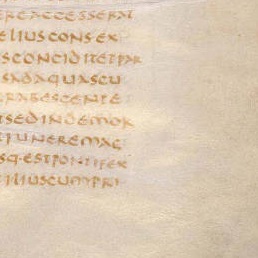 ERE ACCESSERAT
ELIUS CONS EX
S CONCIDIT ET PAR
S AD AQUAS CU
CRABESCENTE
T SED IN DEMOR
T FUNERE MAC
SQ EST PONTIFEX
ILIUS CUM PRI